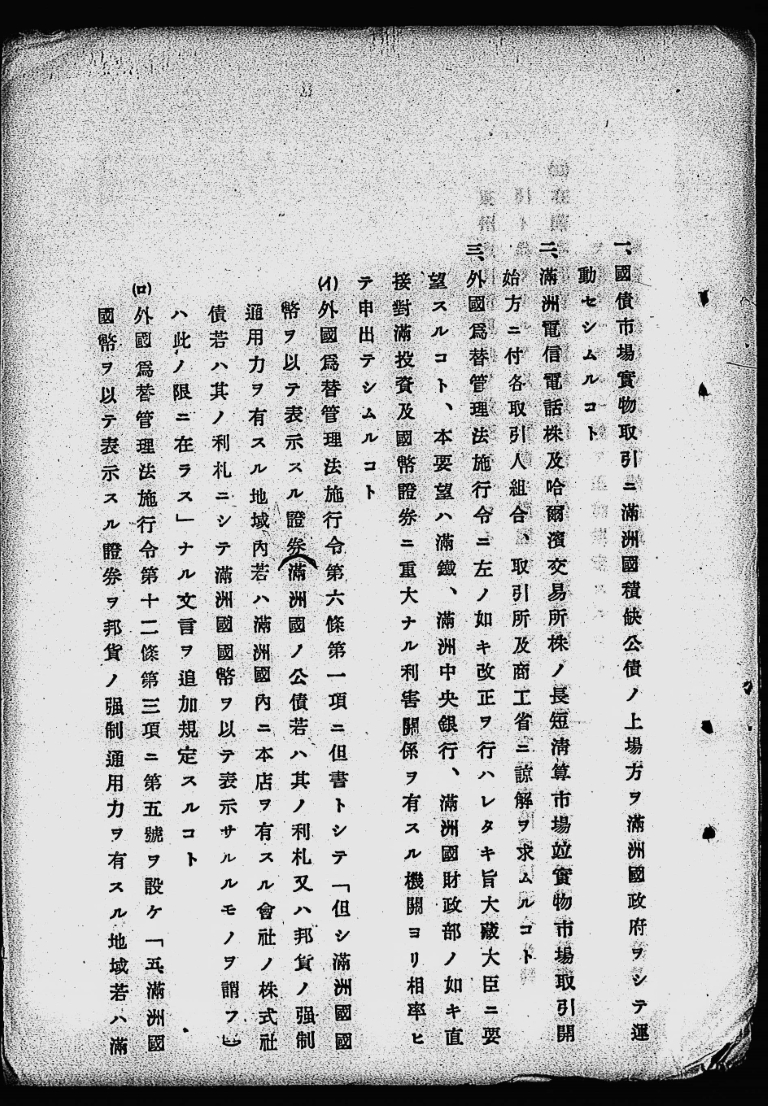 一、國債市場實物取引ニ滿洲國積缺公債ノ上場方ヲ滿洲國政府ヲシテ運
動セシムルコト
二、滿洲電信電話株及哈爾濱交易所株ノ長短淸算市場竝實物市場取引開
始方ニ付各取引人組合、取引所及商工省ニ諒解ヲ求ムルコト
三、外國爲替管理法施行令ニ左ノ如キ改正ヲ行ハレタキ旨大藏大臣ニ要
望スルコト、本要望ハ滿鐵、滿洲中央銀行、滿洲國財政部ノ如キ直
接對滿投資及國幣證券ニ重大ナル利害關係ヲ有スル機關ヨリ相率ヒ
テ申出テシムルコト
(イ)外國爲替管理法施行令第六條第一項ニ但書トシテ「但シ滿洲國國
幣ヲ以テ表示スル證券(滿洲國ノ公債若ハ其ノ利札又ハ邦貨ノ强制
通用力ヲ有スル地域內若ハ滿洲國內ニ本店ヲ有スル會社ノ株式社
債若ハ其ノ利札ニシテ滿洲國國幣ヲ以テ表示サルルモノヲ謂フ)
ハ此ノ限ニ在ラス」ナル文言ヲ追加規定スルコト
(ロ)外國爲替管理法施行令第十二條第三項ニ第五號ヲ設ケ「五、滿洲國
國幣ヲ以テ表示スル證券ヲ邦貨ノ强制通用力ヲ有スル地域若ハ滿